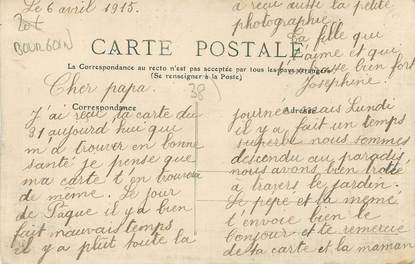 Le 6 avril 1915.
20€
BOURGOIN
CARTE POSTALE
La Correspondance au recto n'est pas acceptée par tous les pays étrangers.
(Se renseigner à la Poste)
Correspondance
Adresse
38
Cher papa.
J'ai reçu la carte du
31 aujourd hui que
m'a trouver en bonne
santé je pense que
ma carte t'en trouvera
de même. Le jour
de Paque il y a bien
fait mauvais temps
il y a plut toute la
journée mais Lundi
il y a fait un temps
superbe nous sommes
descendu au paradis
nous avons bien
à travers le jardin.
Le pepe et la meme
t'envoie bien le
bonjour et te remercie
de ta carte et la maman
a reçu aussi la petite
photographie.
La fille qui
t'aime et qui
bien fort
Josephine.